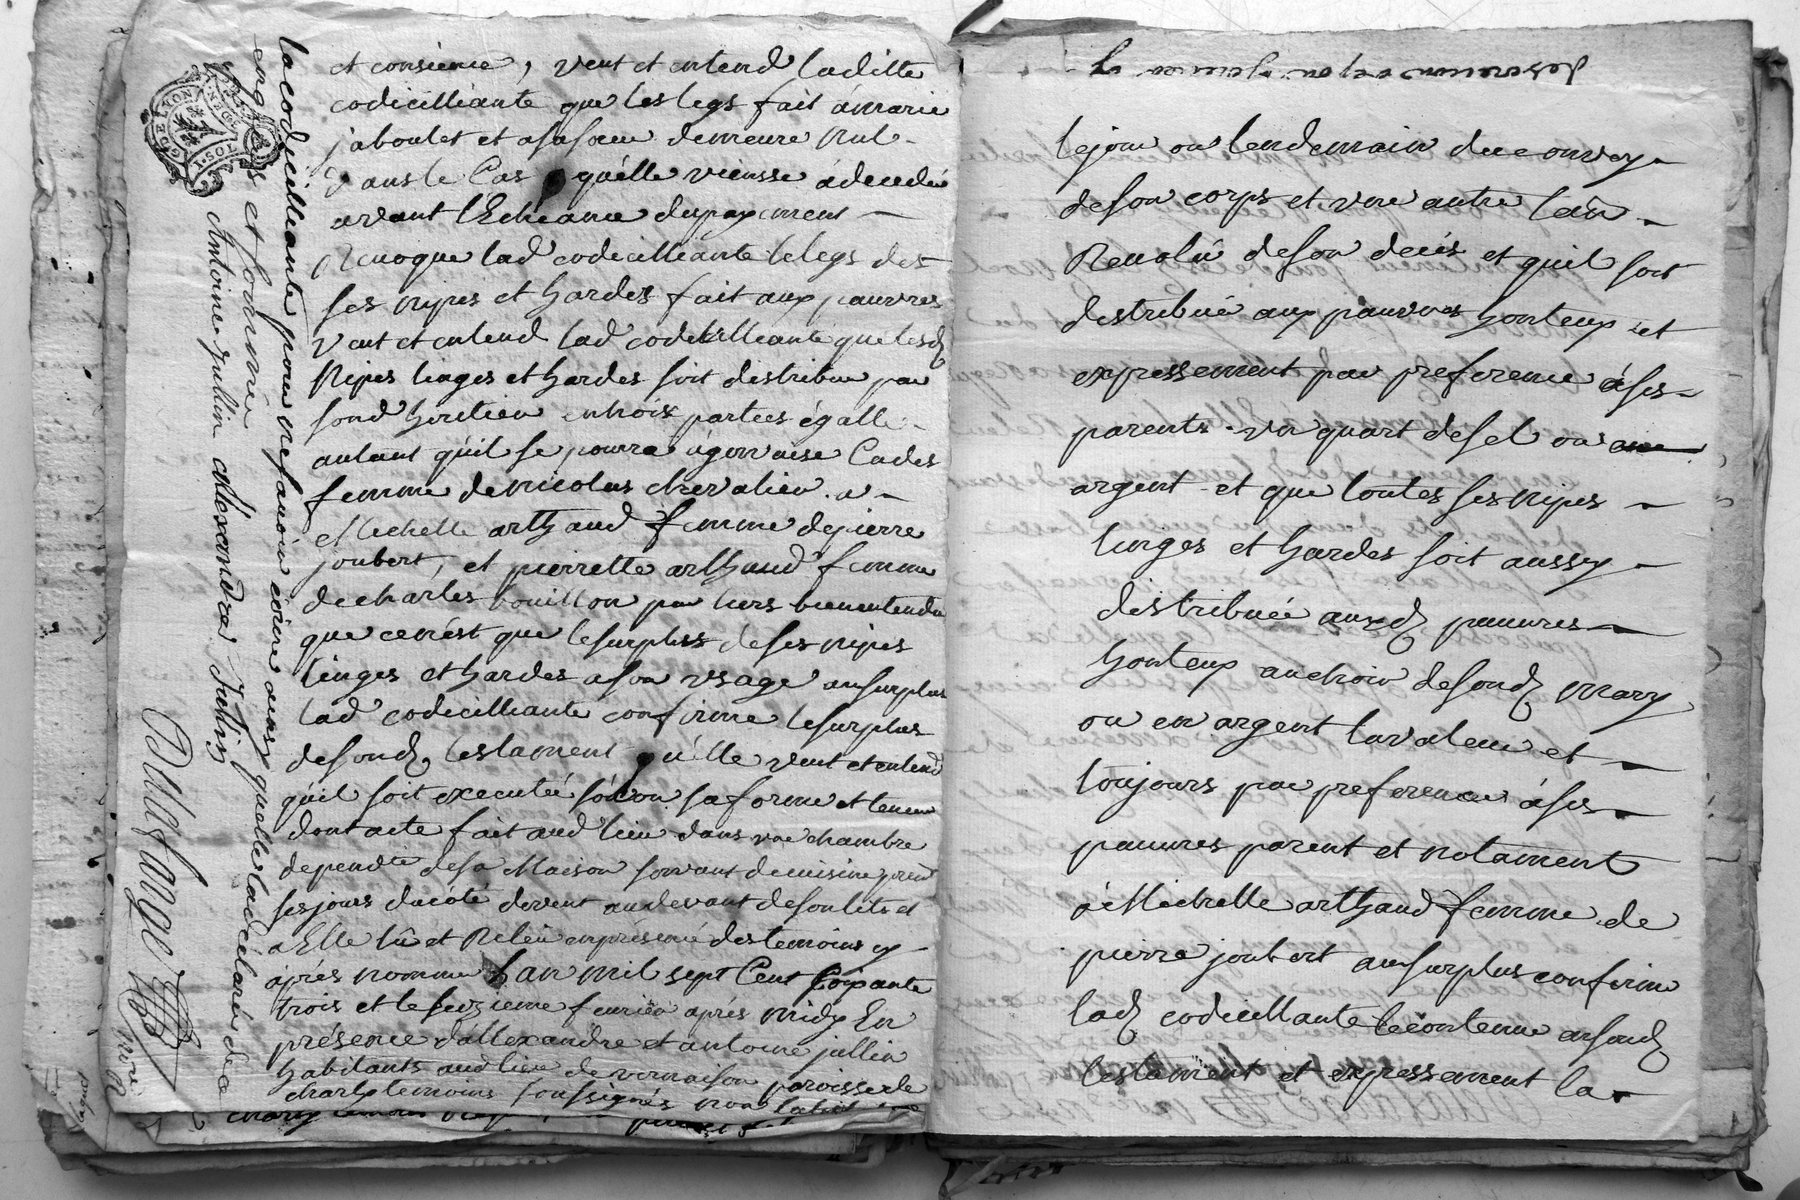 et consience, veut et entend laditte
codicilliante que les legs fait a marie
jaboulet et a sa soeur demeure nul
dans le Cas quélle viensse a deceder
avant l'Echeance du payement
Revoque lad codicilliante le legs des
ses nipes et hardes fait aux pauvres
veut et entend lad codicilliante que lesd
Nipes linges et hardes soit distribue par
sond heritier en trois parties égalle
autant quil se pourra a
femme de nicolas chevalier . a
Michelle arthaud femme de pierre
joubert, et pierrette arthaud femme
de charles bouillon par tiers bien entendu
que ce nest que le surplus de ses nipes
linges et hardes a son usage au surplus
lad codicilliante confirme le surplus
de sond testament quélle veut et entend
quil soit executté selon sa forme et teneur
dont acte fait aud lieu dans une chambre
dependte de sa Maison servant de cuisine
ses jours du côté devent au devant de son lit et
a Elle lû et Releu en presence des temoins cy
aprés nommé L'an mil sept Cent soixante
trois et le seizieme fevrier aprés midy En
présence dállexandre et antoine jullin
habitants aud lieu de vernaison paroisse de
charly temoins soussignés non lad
la codicilliante pour ne savoir écrire ainsy quelle la déclaré de ce
enquise et sommé
Antoine jullin allexandre Jullin
Dulfange
GDE LYON
1·SOL
le jour ou lendemain du convoy
de son corps et une autre lan
Revolû de son decés et quil soit
distribué aux pauvres honteux et
expressement par preference à ses
parents un quart de sel ou
argent et que toutes ses nipes
linges et hardes soit aussy
distribuée auxd pauvres
honteux au choix de sond mary
ou en argent la valeur et
toujours par preference à ses
pauvres parent et notament
à Michelle arthaud femme de
pierre joubert au surplus confirme
lad codicillante le contenu a sond
testament et expressement la